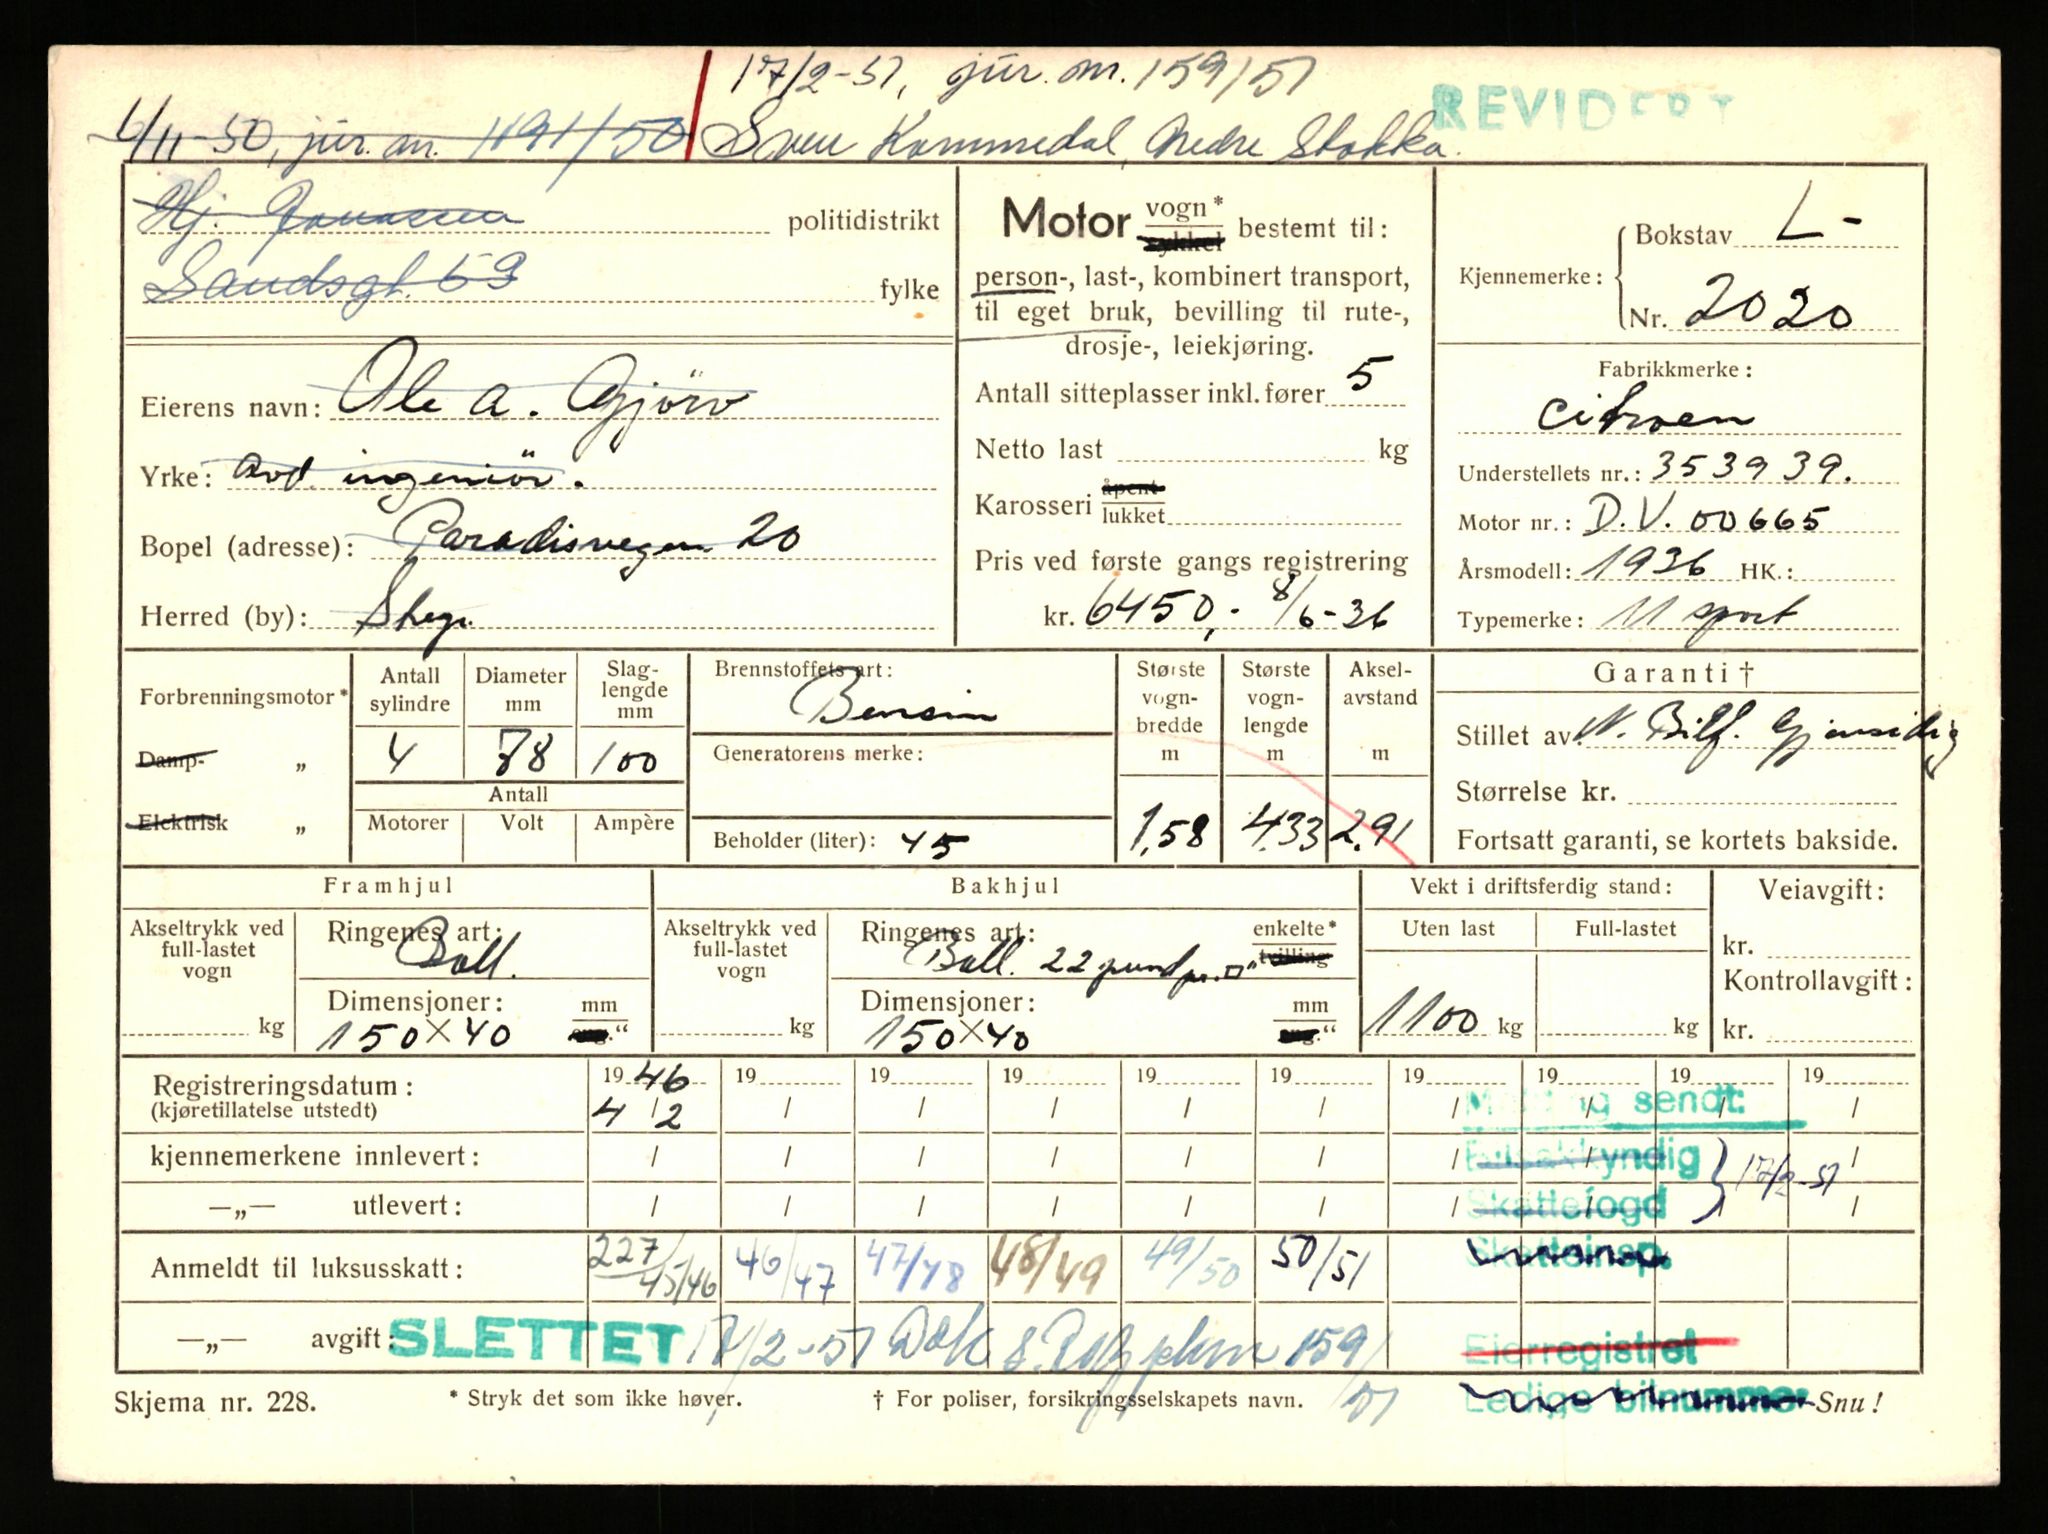 17/2-51, jur. nr. 159/51
REVIDERT
6/11-50, jur. nr. 1191/50 Sven Kommedal, Nedre Stokka.
Hj. Jonassen politidistrikt
Sandsgt. 53 fylke
Eierens navn: Ole A. Gjörv
Yrke: Avd. ingeniör.
Bopel (adresse): Paradisvegen 20
Herred (by): Stvgr.
Motor vogn* sykkel bestemt til:
person-, last-, kombinert transport,
til eget bruk, bevilling til rute-,
drosje-, leiekjøring.
Antall sitteplasser inkl. fører 5
Netto last kg
Karosseri åpent lukket
Pris ved første gangs registrering
kr. 6450,- 8/6-36
Kjennemerke: Bokstav L-
Nr. 2020
Fabrikkmerke:
Citroen
Understellets nr.: 353939.
Motor nr.: D.V. 00665
Årsmodell: 1936 HK.:
Typemerke: 11 sport
Forbrenningsmotor*
Damp- „
Elektrisk „
Antall sylindre
4
Diameter mm
78
Slag-lengde mm
100
Antall
Motorer Volt Ampère
Brennstoffets art:
Bensin
Generatorens merke:
Beholder (liter): 45
Største vogn-bredde m
1,58
Største vogn-lengde m
4.33
Aksel-avstand m
2,91
Garanti †
Stillet av: N. Bilf. Gjensidig
Størrelse kr.
Fortsatt garanti, se kortets bakside.
Framhjul
Akseltrykk ved full-lastet vogn
kg
Ringenes art:
Ball.
Dimensjoner: mm
150×40 eng."
Bakhjul
Akseltrykk ved full-lastet vogn
kg
Ringenes art: enkelte* tvilling
Ball. 22 pund pr. □"
Dimensjoner: mm
150×40 eng."
Vekt i driftsferdig stand:
Uten last Full-lastet
1100 kg kg
Veiavgift:
kr.
Kontrollavgift:
kr.
Registreringsdatum: 1946 19 19 19 19 19 19 19 19 19
(kjøretillatelse utstedt) 4/2 / / / / / / / / /
Melding sendt:
kjennemerkene innlevert: / / / / / / / / /
Bilsakkyndig } 17/2-51
—„— utlevert: / / / / / / / / /
Skattefogd
Anmeldt til luksusskatt: 227/45/46 46/47 47/48 48/49 49/50 50/51
Skatteinsp.
—„— avgift: SLETTET 17/2-51 159/51
Eierregistret
Ledige bilnummer
Skjema nr. 228. * Stryk det som ikke høver. † For poliser, forsikringsselskapets navn. Snu!